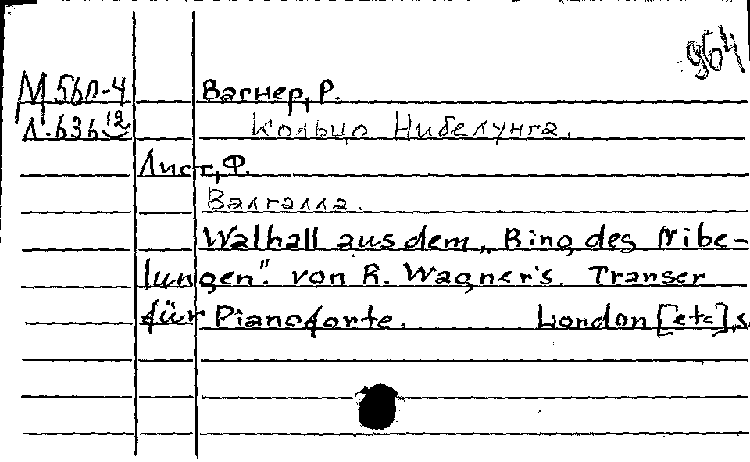 964
М 560-4 Вагнер, Р.
Л-636 12 Кольцо Нибелунга.
Лист, Ф.
Валгалла.
Walhall aus dem „Ring des Nibe-
lungen". von R. Wagner's. Transcr
für Pianoforte. London [etc], s.